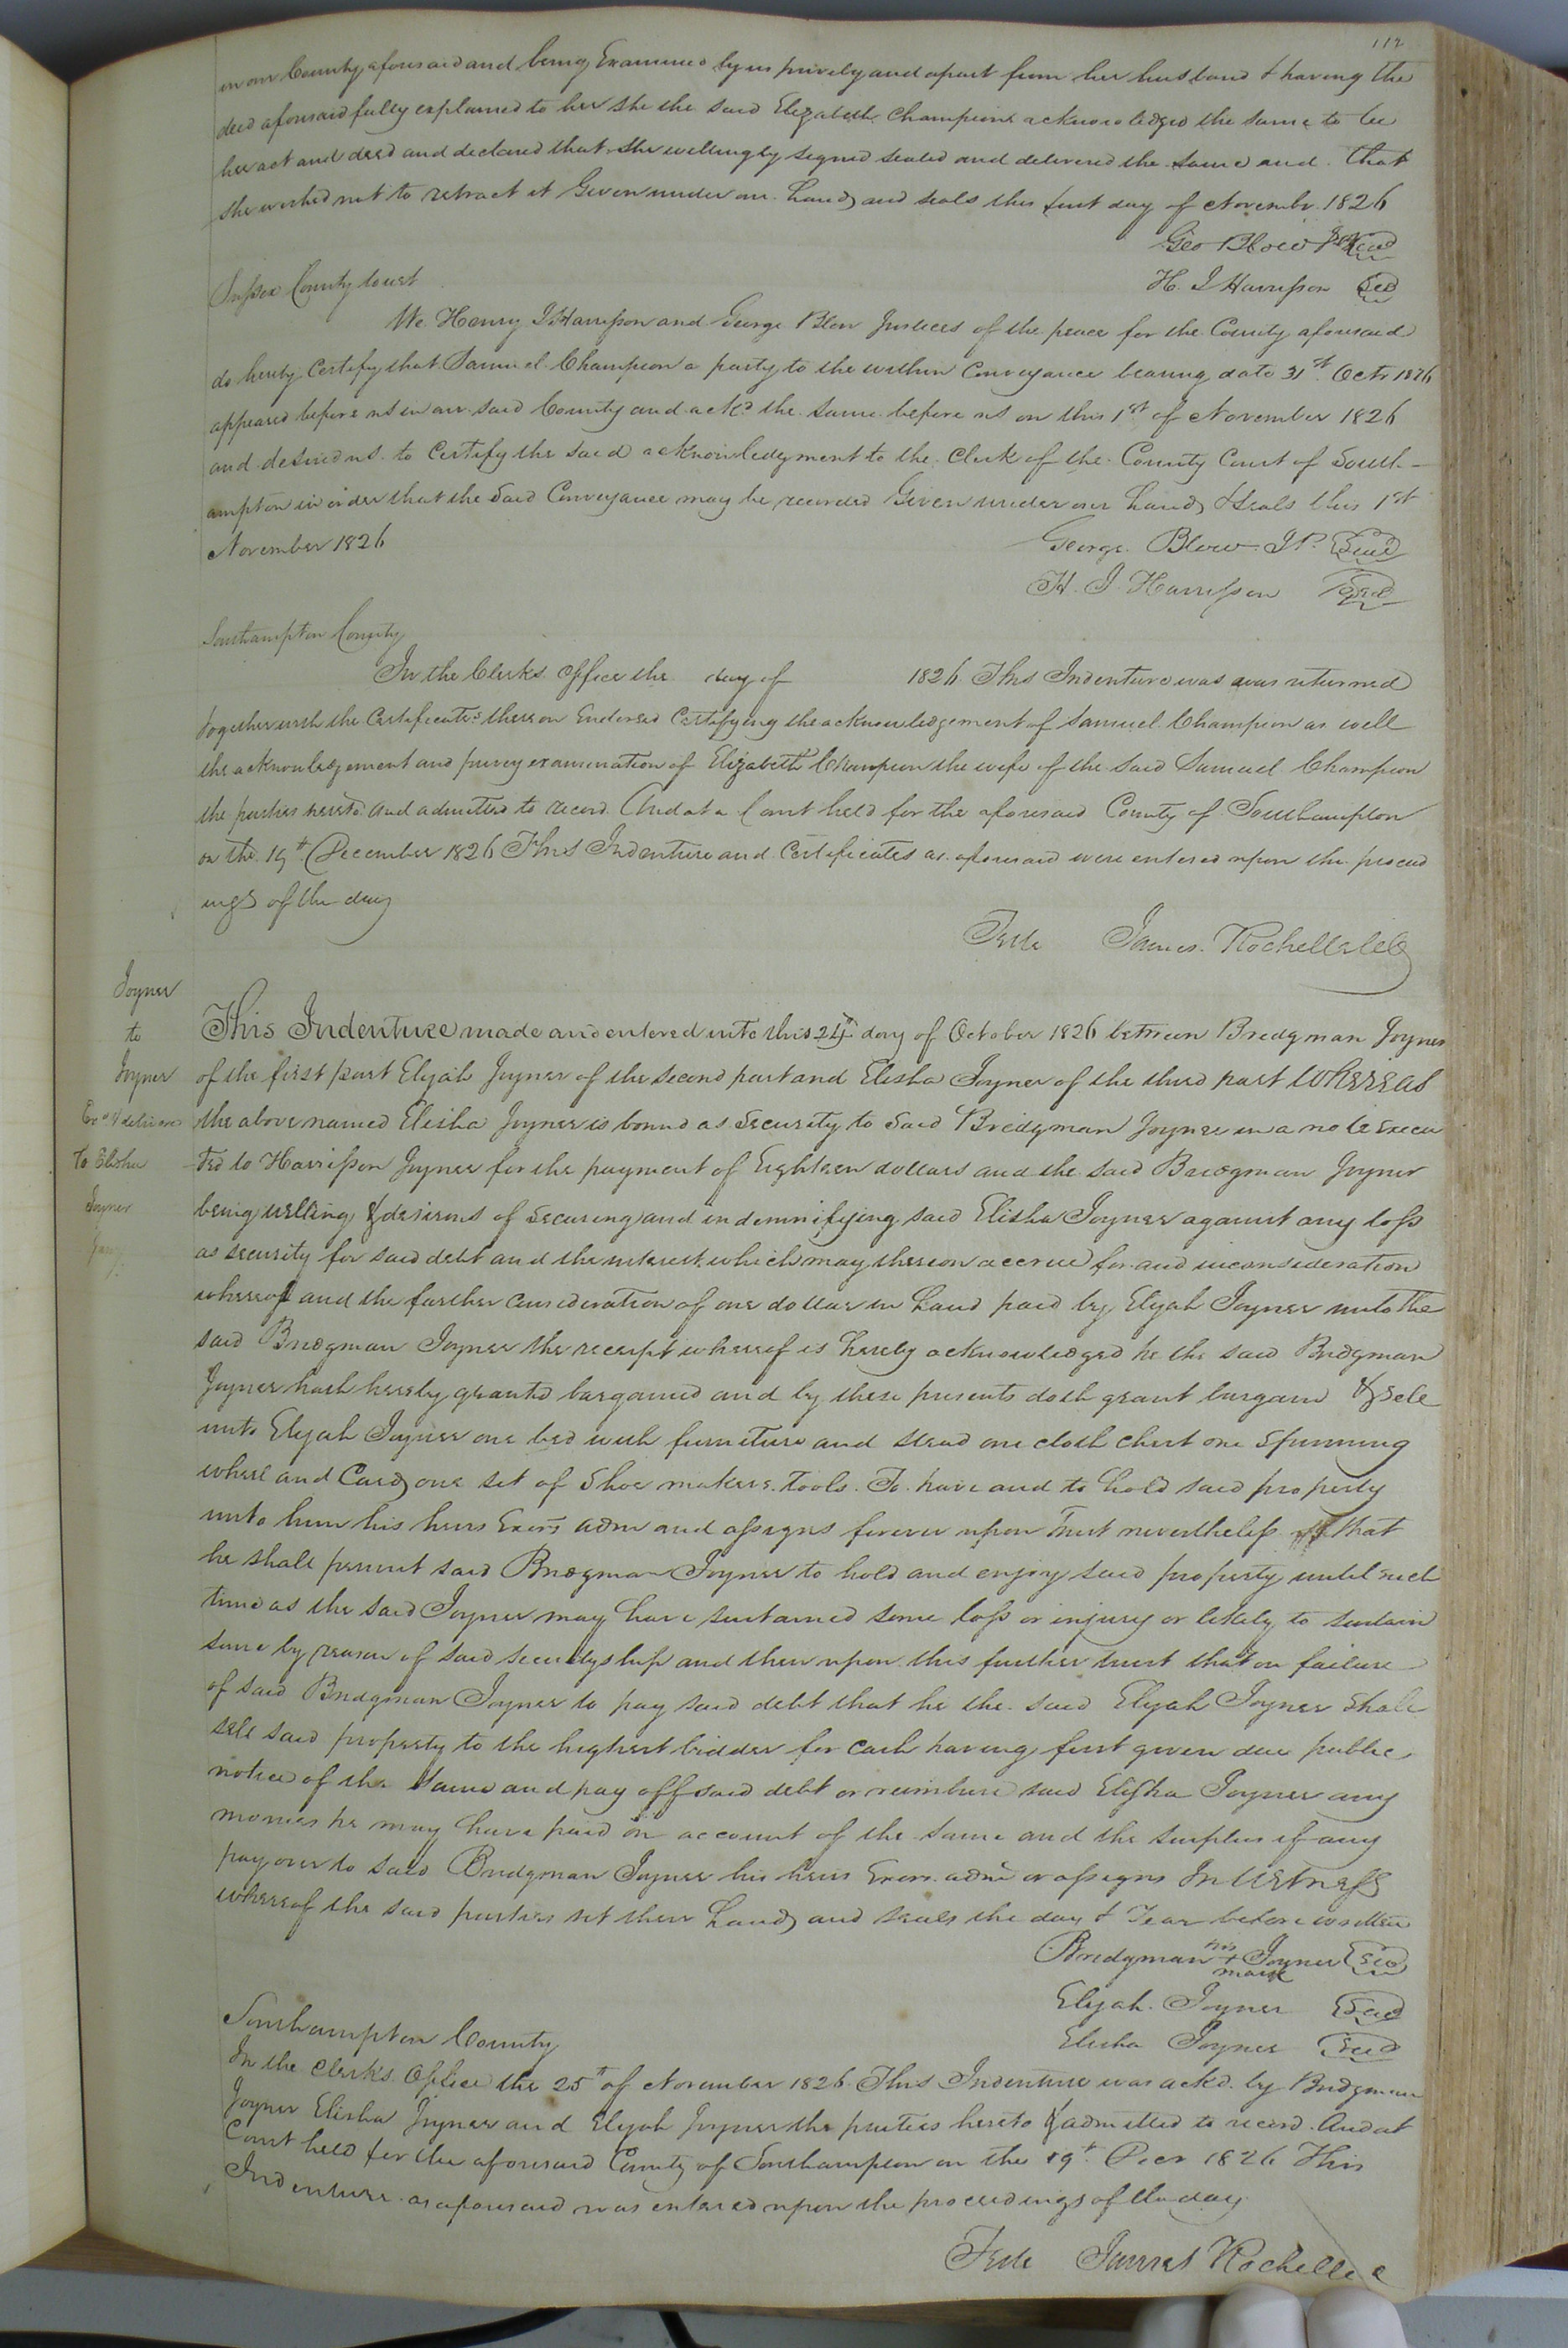 112
in our County aforesaid and being Examined by us privily and apart from her husband & having the
deed aforesaid fully explained to her She the said Elizabeth Champion acknowledged the same to be
her act and deed and declared that she willingly signed sealed and delivered the same and that
she wished not to retract it Given under our hands and seals this first day of November 1826
Geo Blow Seal
H. J Harrison Seal
Sussex County Court
We Henry J Harrison and George Blow Justices of the peace for the County aforesaid
do hereby Certify that Samuel Champion a party to the within Conveyance bearing date 31st Octr 1826
appeared before us in our said County and ackd the same before us on this 1st of November 1826
and desired us to Certify the said acknowledgment to the Clerk of the County Court of South-
ampton in order that the Said Conveyance may be recorded Given under our hands & seals this 1st
November 1826
George Blow J.P. Seal
H. J. Harrison Seal
Southampton County
In the Clerks Office the day of 1826 This Indenture was was returned
together with the Certificates thereon Endorsed Certifying the acknowledgement of Samuel Champion as well
the acknowledgement and privy examination of Elizabeth Champion the wife of the said Samuel Champion
the parties hereto and admitted to record And at a Court held for the aforesaid County of Southampton
on the 19t December 1826 This Indenture and Certificates as aforesaid were entered upon the proceed
ings of the day
Teste James Rochelle
Joyner
to
Joyner
delivered
To Elisha
Joyner
This Indenture made and entered into this 24th day of October 1826 between Bridgman Joyner
of the first part Elijah Joyner of the second part and Elisha Joyner of the third part Whereas
the above named Elisha Joyner is bound as Security to Said Bridgman Joyner in a note Execu
ted to Harrison Joyner for the payment of Eighteen dollars and the said Bridgman Joyner
being willing & desirous of Securing and indemnifying said Elisha Joyner against any loss
as security for said debt and the interest which may thereon accrue for and in consideration
whereof and the further Consideration of one dollar in hand paid by Elijah Joyner unto the
said Bridgman Joyner the receipt whereof is hereby acknowledged he the said Bridgman
Joyner hath hereby granted bargained and by these presents doth grant bargain & Sell
unto Elijah Joyner one bed with furniture and stead one cloth chest one Spinning
wheel and Cards one set of Shoe makers tools. To have and to hold said property
unto him his heirs Exors admr and assigns forever upon Trust nevertheless that
he shall permit said Bridgman Joyner to hold and enjoy said property until such
time as the said Joyner may have sustained some loss or injury or likely to sustain
same by reason of said securityship and then upon this further trust that on failure
of said Bridgman Joyner to pay said debt that he the said Elijah Joyner Shall
sell said property to the highest bidder for Cash having first given due public
notice of the Same and pay off said debt or reimburse said Elisha Joyner any
monies he may have paid on account of the same and the surplus if any
pay over to said Bridgman Joyner his heirs Exors. admr or assigns In Witness
whereof the said parties set their hands and seals the day & Year before written
Bridgman his + mark Joyner Seal
Elijah Joyner Seal
Elisha Joyner Seal
Southampton County
In the Clerks Office the 25th of November 1826 This Indenture was ackd. by Bridgman
Joyner Elisha Joyner and Elijah Joyner the parties hereto & admitted to record. And at
Court held for the aforesaid County of Southampton on the 19t Decr 1826 This
Indenture as aforesaid was entered upon the proceedings of the day
Teste James Rochelle c